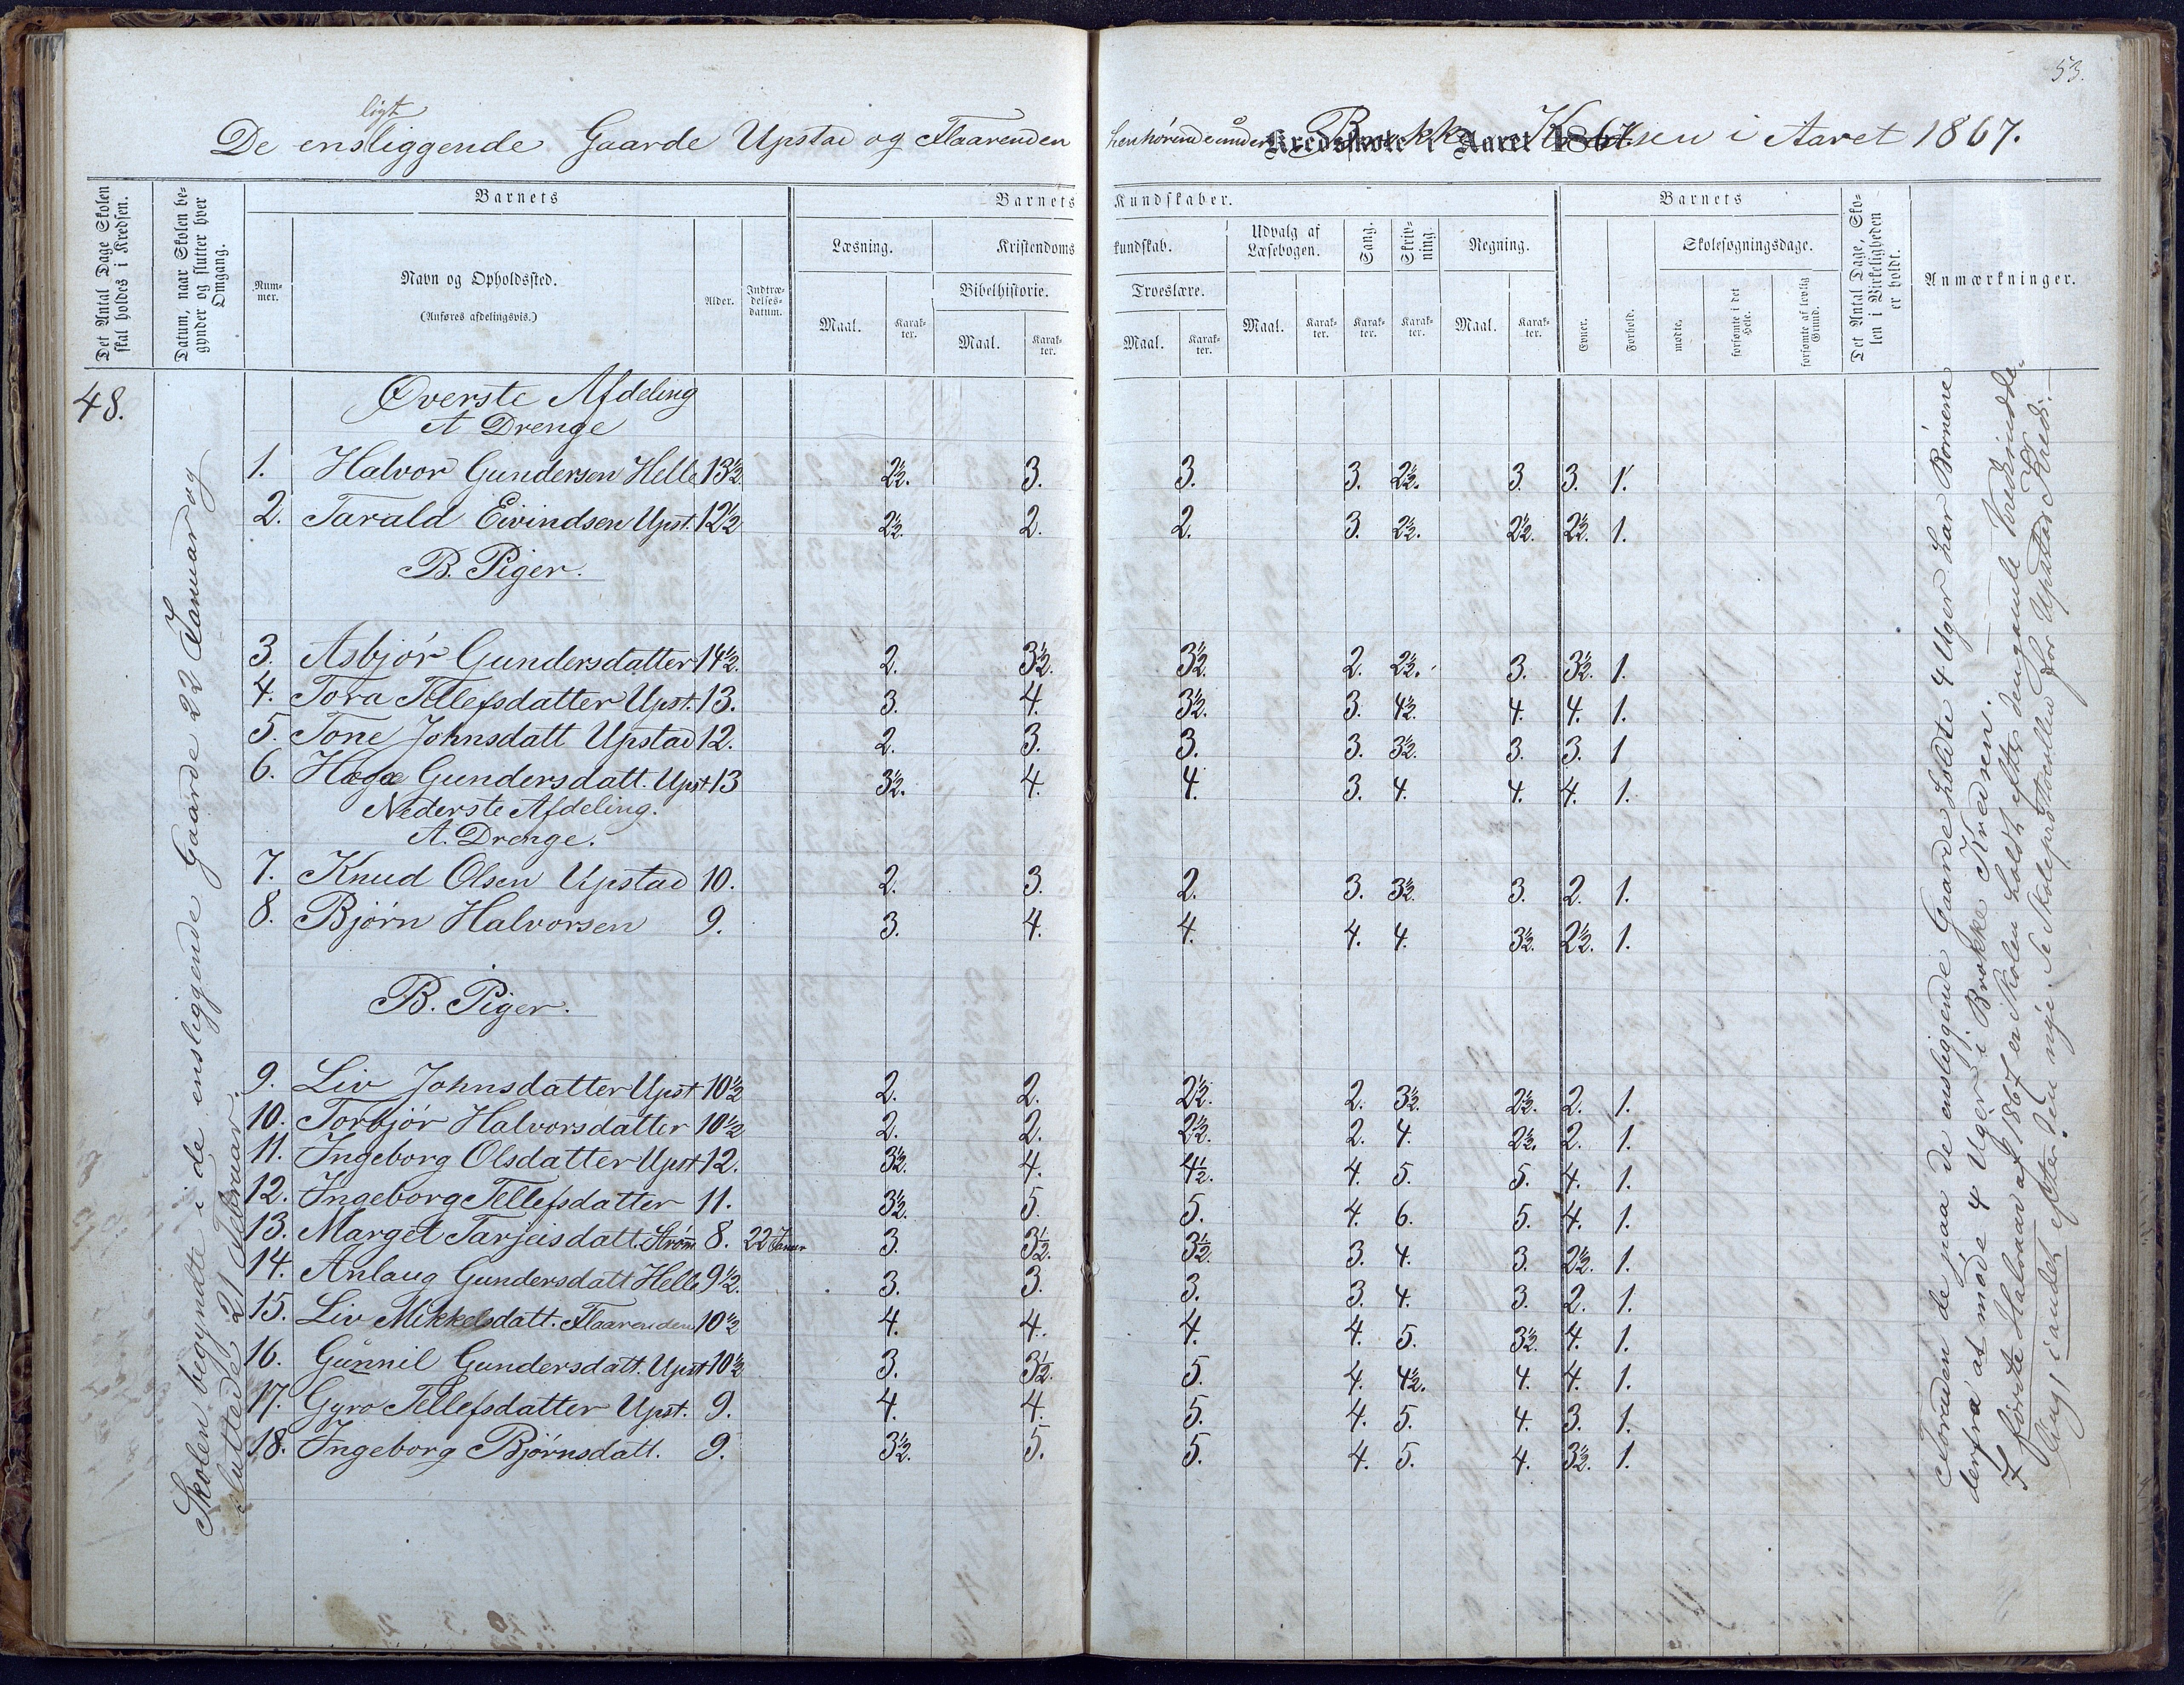 53.
ligt
De ensliggende Gaarde Upstad og Flaarenden henhørende under Brokke Kredsen i Aaret 1867.
Kredsskole i Aaret 186
Det Antal Dage Skolen skal holdes i Kredsen.
Datum, naar Skolen begynder og slutter hver Omgang.
Barnets
Nummer.
Navn og Opholdssted.
(Anføres afdelingsvis.)
Alder.
Indtrædelsesdatum.
Barnets Kundskaber.
Læsning.
Kristendomskundskab.
Udvalg af Læsebogen.
Sang.
Skrivning.
Regning.
Bibelhistorie.
Troeslære.
Maal.
Karakter.
Maal.
Karakter.
Maal.
Karakter.
Maal.
Karakter.
Karakter.
Karakter.
Maal.
Karakter.
Barnets
Evner.
Forhold.
Skolesøgningsdage.
mødte.
forsømte i det Hele.
forsømte af lovlig Grund.
Det Antal Dage, Skolen i Virkeligheden er holdt.
Anmærkninger.
48.
Skolen begyndte i de ensliggende Gaarde 22 Januar og
sluttede 21 Februar.
Øverste Afdeling
A Drenge
1. Halvor Gundersen Helle 13½. 2½. 3. 3. 3. 2½. 3. 3. 1.
2. Tarald Eivindsen Upst. 12½ 2½. 2. 2. 3. 2½. 2½. 2½. 1.
B. Piger.
3. Asbjør Gundersdatter 14½. 2. 3½. 3½. 2. 2½. 3. 3½. 1.
4. Tora Tellefsdatter Upst. 13. 3. 4. 3½. 3. 4½. 4. 4. 1.
5. Tone Johnsdatt Upstad 12. 2. 3. 3. 3. 3½. 3. 3. 1
6. Hæge Gundersdatt. Upst 13 3½. 4. 4. 3. 4. 4. 4. 1.
Nederste Afdeling.
A. Drenge.
7. Knud Olsen Upstad 10. 2. 3. 2. 3. 3½. 3. 2. 1.
8. Bjørn Halvorsen 9. 3. 4. 4. 4. 4. 3½. 2½. 1.
B. Piger.
9. Liv Johnsdatter Upst 10½ 2. 2. 2½. 2. 3½. 2½. 2. 1.
10. Torbjør Halvorsdatter 10½ 2. 2. 2½. 2. 4. 2½. 2. 1.
11. Ingeborg Olsdatter Upst 12. 3½. 4. 4½. 4. 5. 5. 4. 1.
12. Ingeborg Tellefsdatter 11. 3½. 5. 5. 4. 6. 5. 4. 1.
13. Marget Tarjeisdatt. Strøm 8. 22 Januar 3. 3½. 3½. 3. 4. 3. 2½. 1.
14. Anlaug Gundersdatt Helle 9½. 3. 3. 3. 3. 4. 3. 2. 1.
15. Liv Mikkelsdatt. Flaarenden 10½ 4. 4. 4. 4. 5. 3½. 4. 1.
16. Gunnil Gundersdatt. Upst 10½ 3. 3½. 5. 4. 4½. 4. 4. 1.
17. Gyro Tellefsdatter Upst. 9. 4. 4. 5. 4. 5. 4. 3. 1.
18. Ingeborg Bjørnsdatt. 9. 3½. 5. 5. 4. 5. 4. 3½. 1.
Foruden de paa de ensliggende Gaarde holdte 4 Uger har Børnene
derfra at møde 4 Uger i Brokke Kredsen.
I første Halvaar af 1867 er Skolen holdt efter den gamle Kredsindde-
ling, i andet efter den nye. Se Skoleprotocollen for Upstad Kreds.